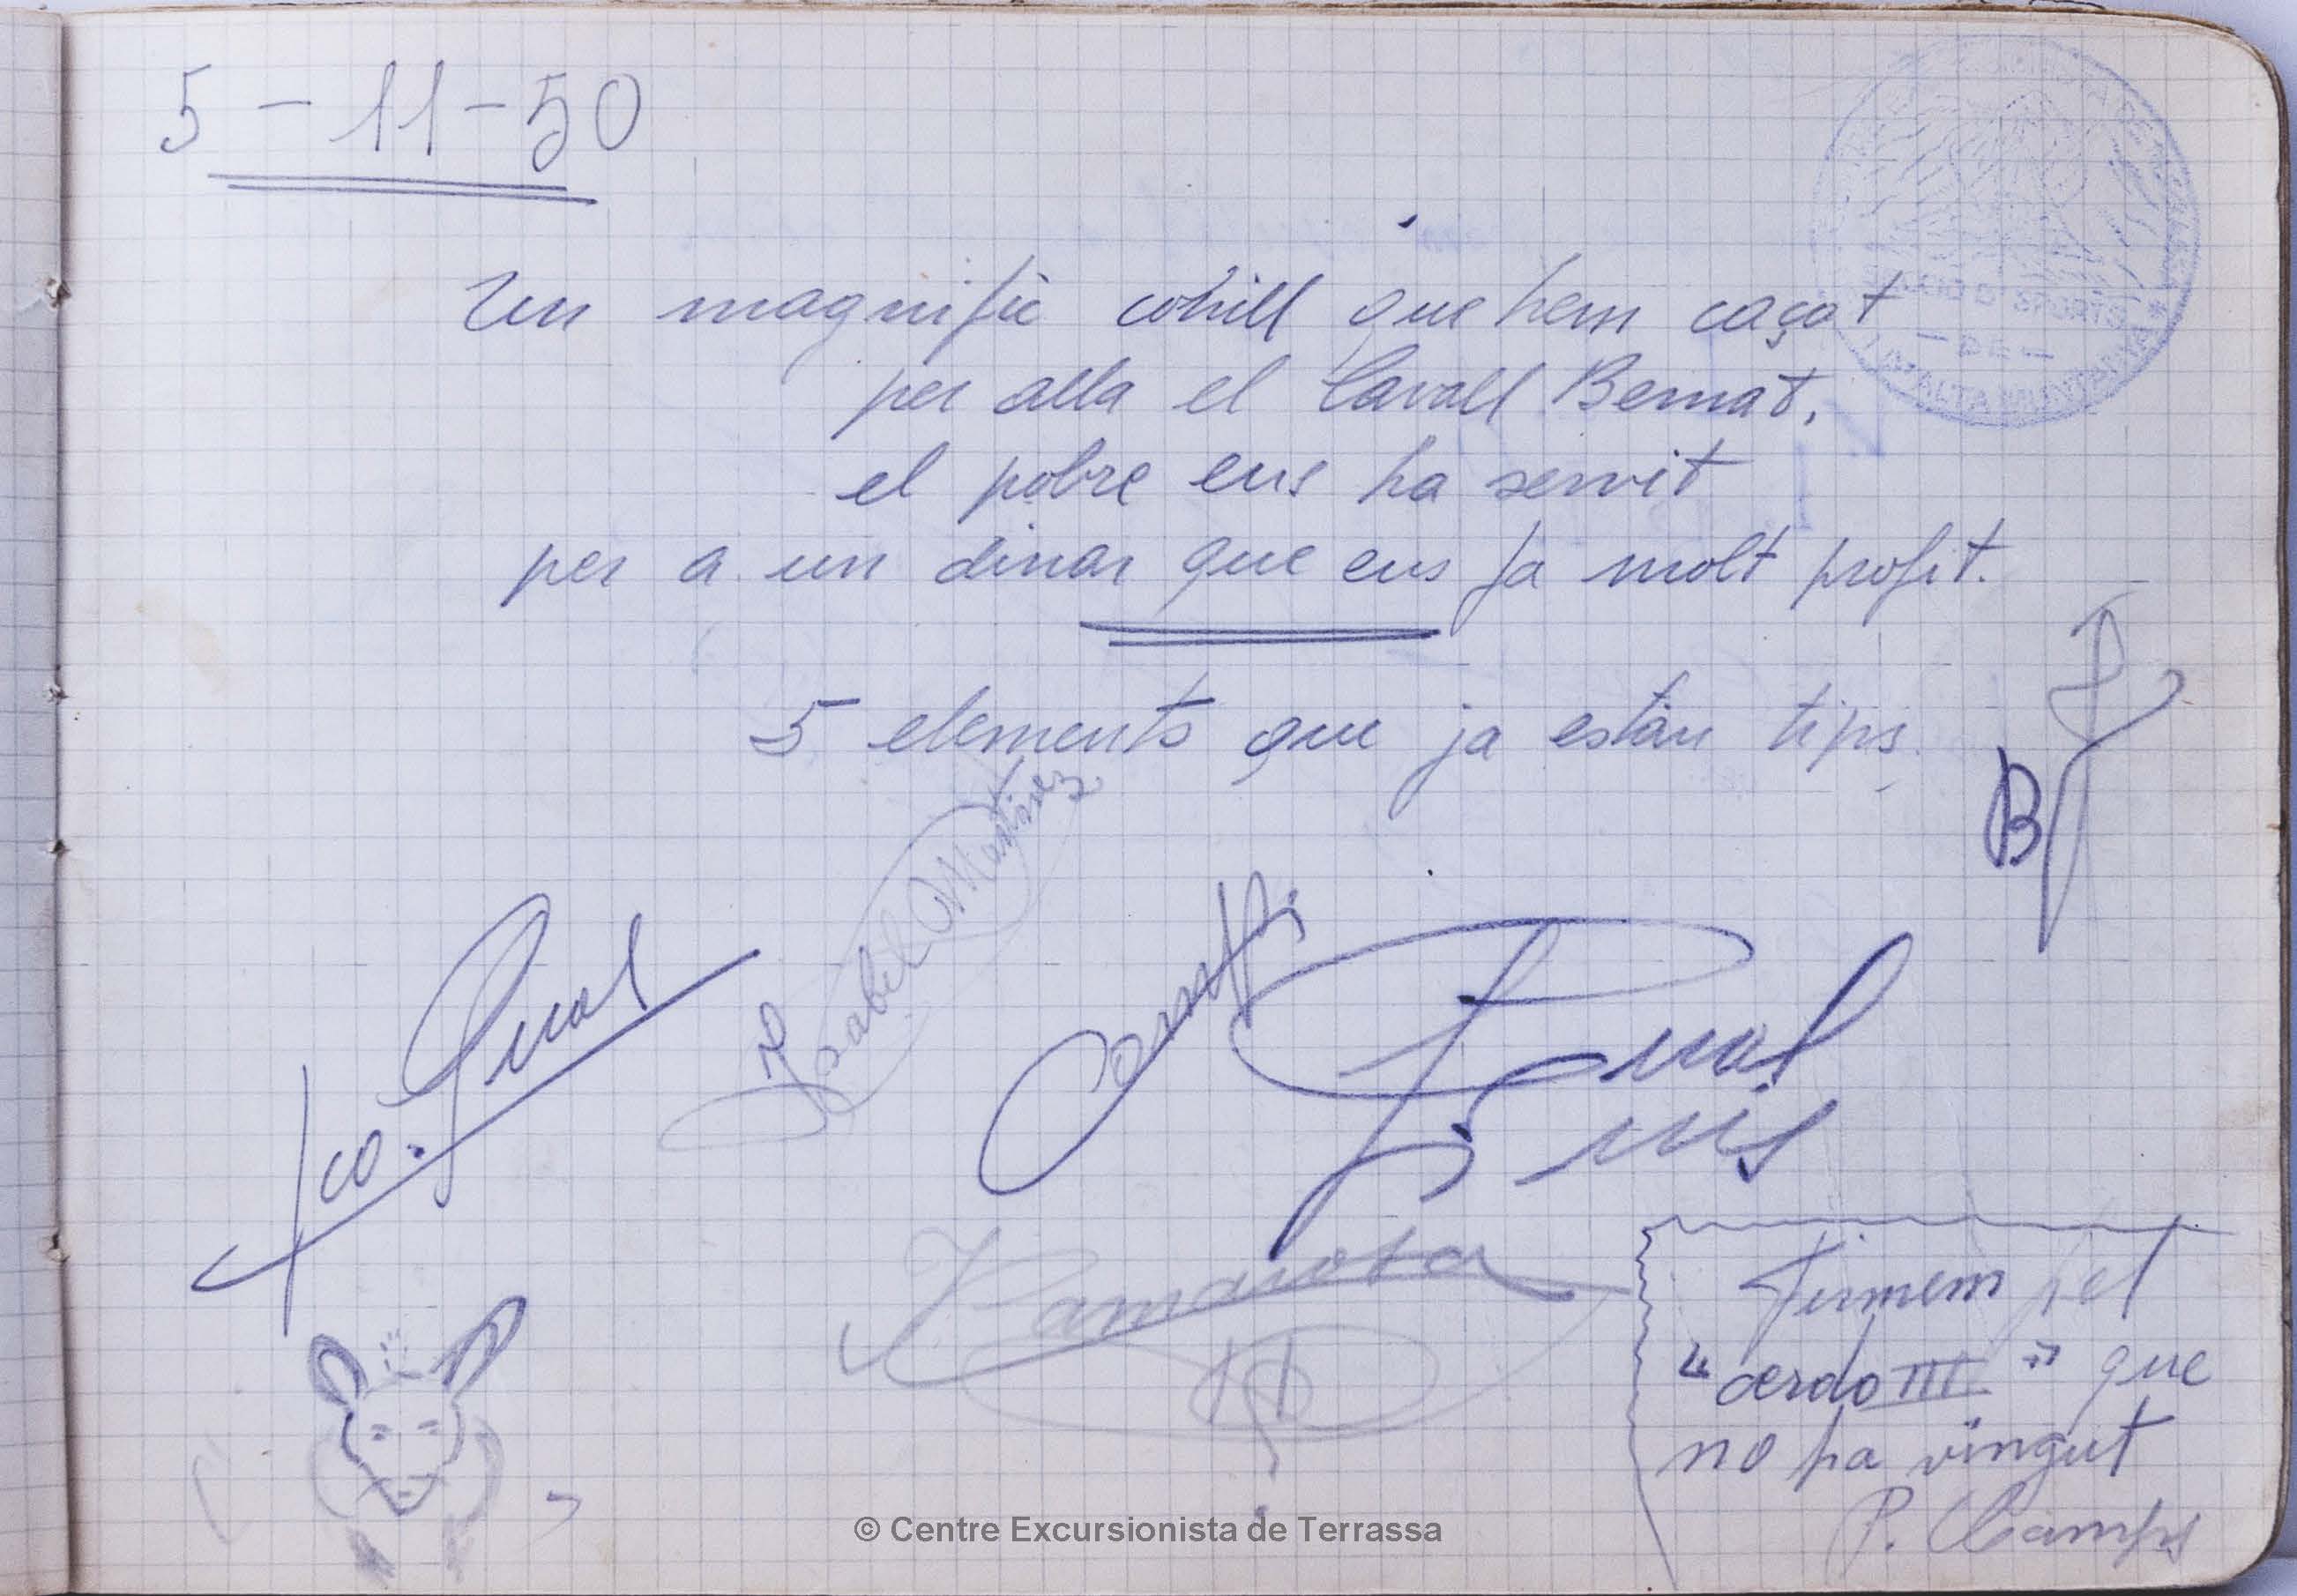 5 - 11 - 50
Un magnific cohill que hem caçat
per alla el Cavall Bernat,
el pobre ens ha servit
per a un dinar que ens fa molt profit.
5 elements que ja están tips.
B
Isabel Martínez
Fco. Gual
Gual
Lluis
Firmem pel
"cerdo III" que
no ha vingut
P. Camps
© Centre Excursionista de Terrassa